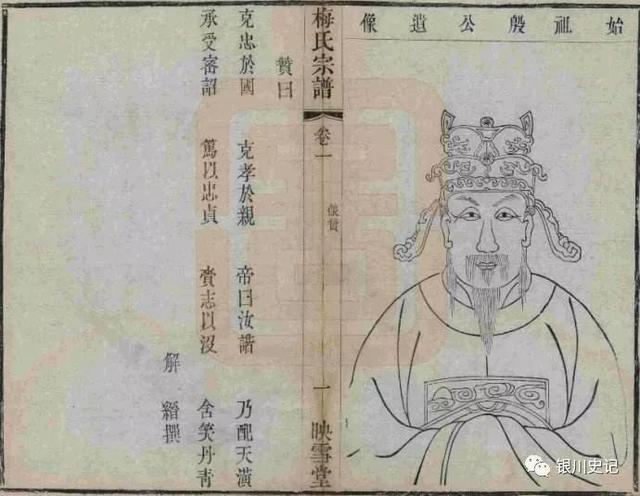 始祖殷公遺像
梅氏宗譜 卷一 一 映雪堂
贊曰
克忠於國 克孝於親 帝曰汝諧 乃配天潢
承受密詔 篤以忠貞 賫志以沒 含笑丹青
解縉撰
银川史记